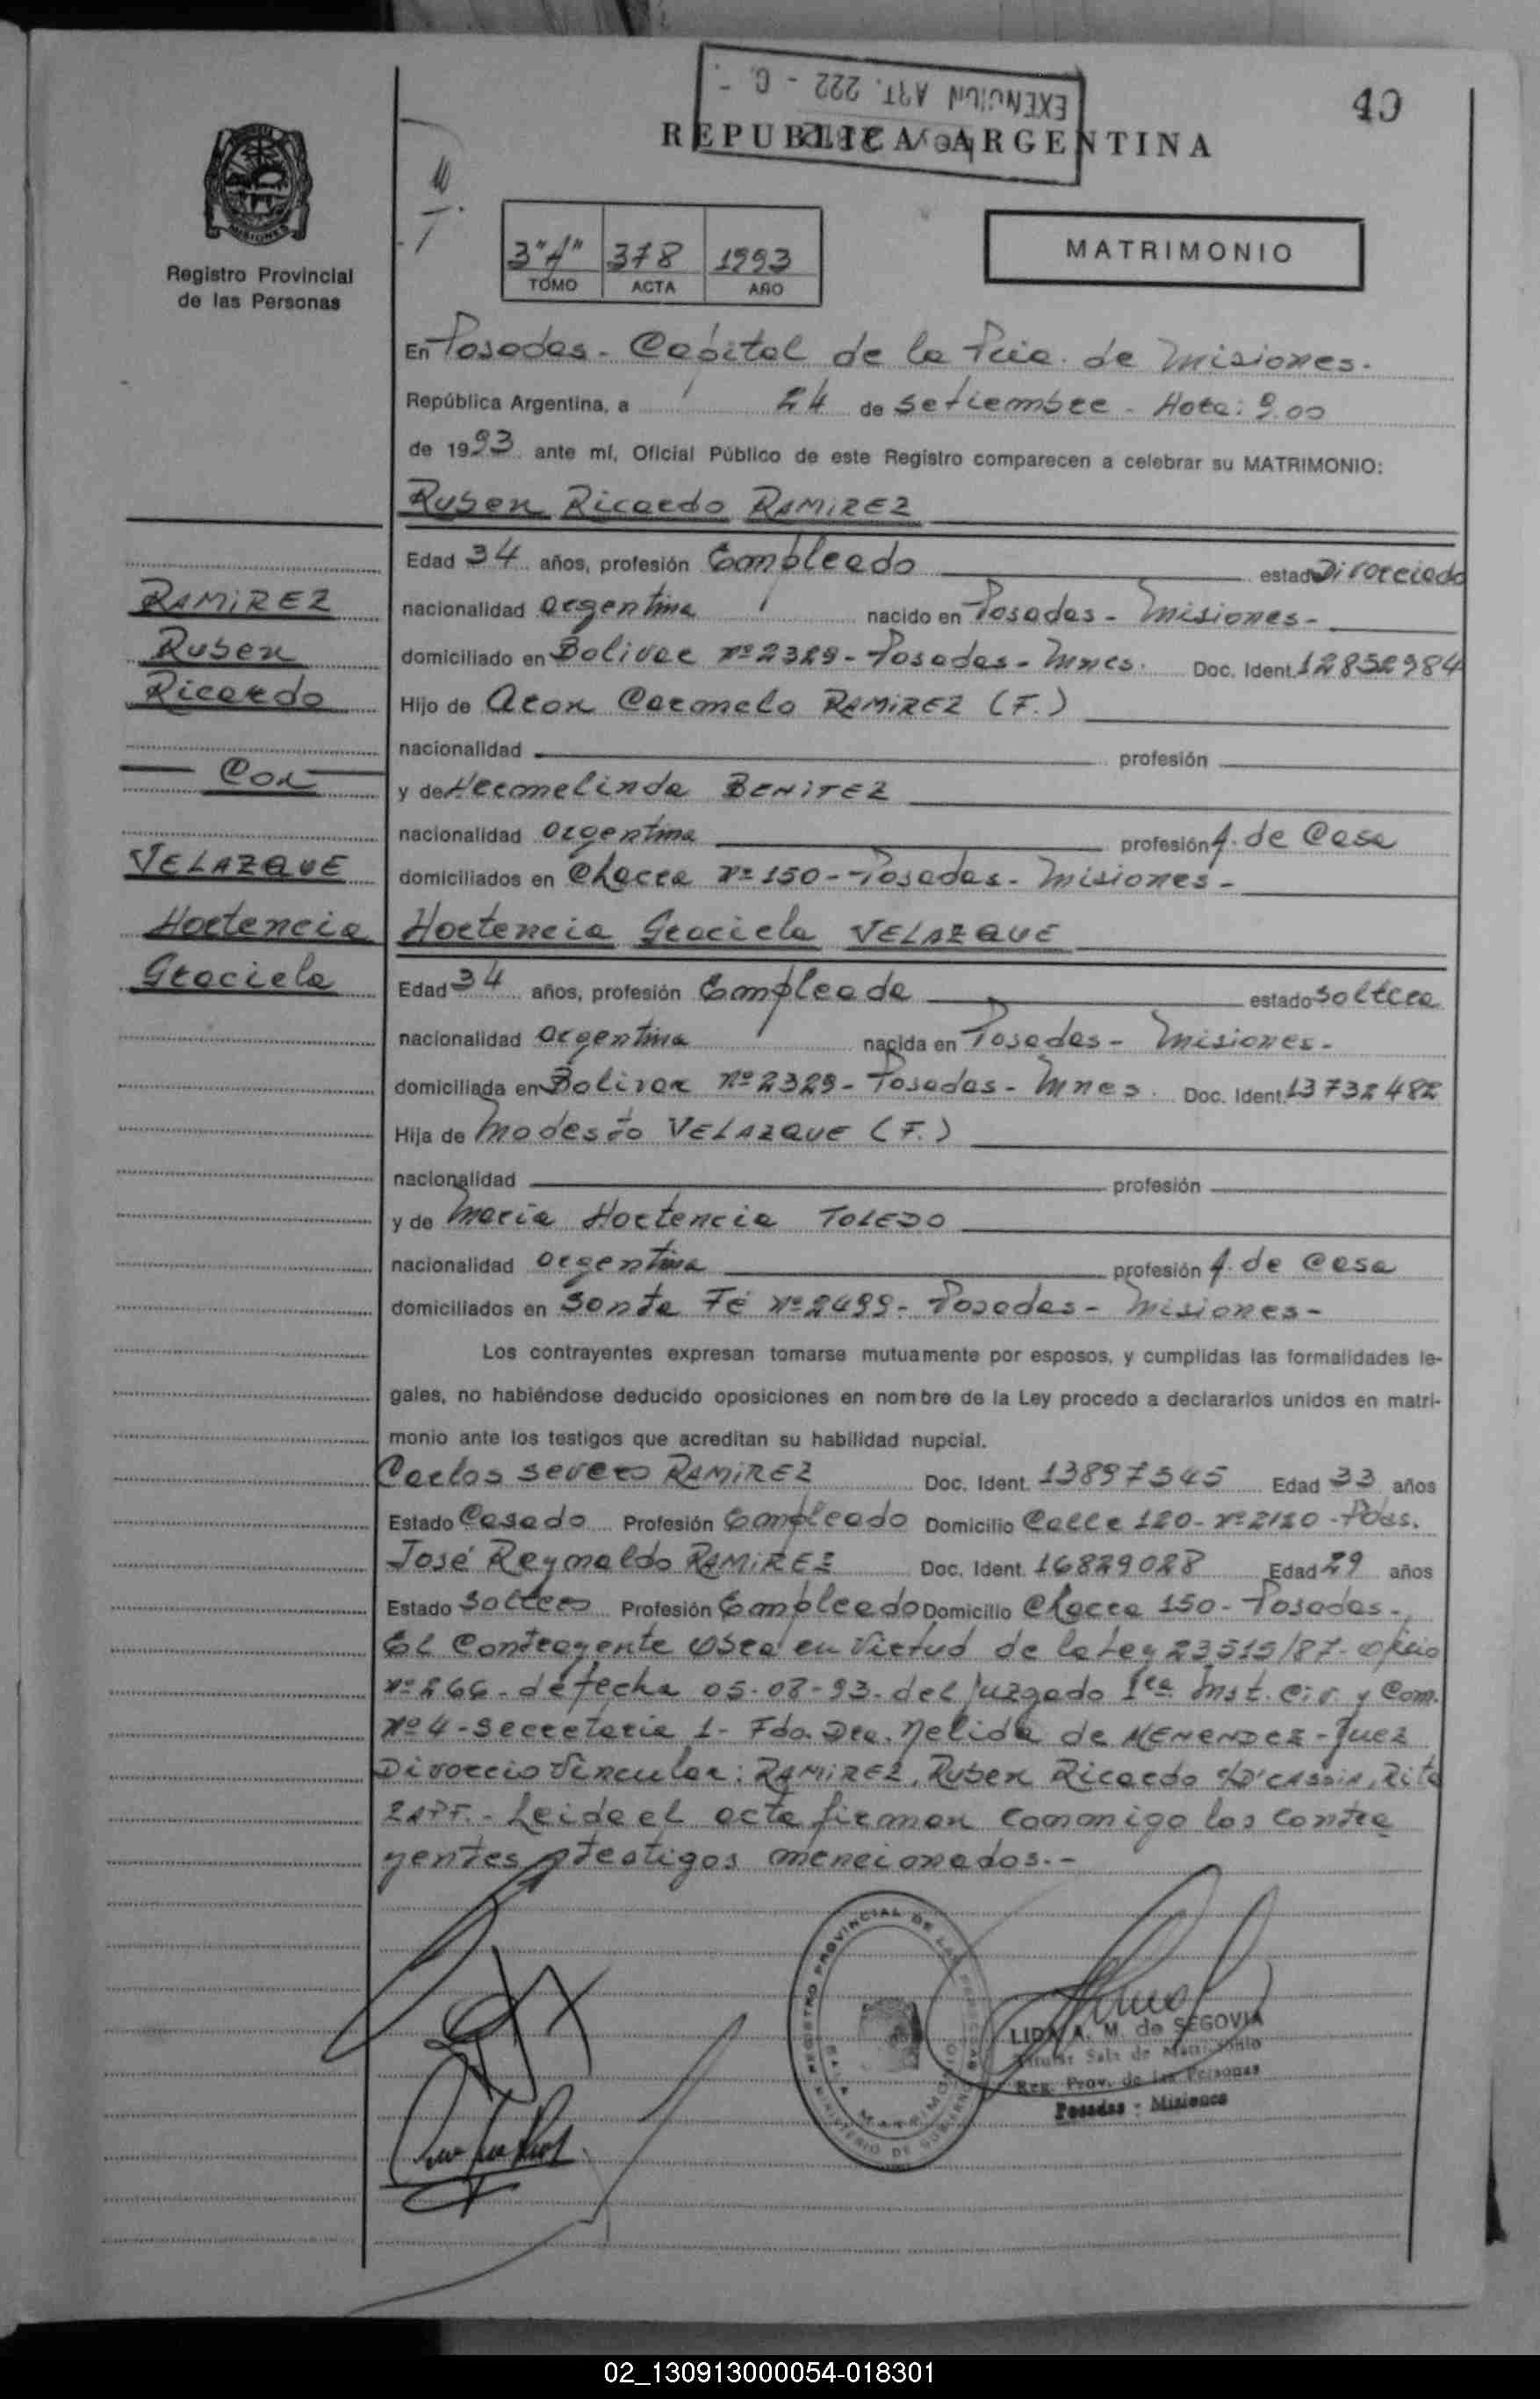 EXENCION ART. 222 - C
40
REPUBLICA ARGENTINA
MISIONES
Registro Provincial
de las Personas
3"A" 378 1993
TOMO ACTA AÑO
MATRIMONIO
En Posadas - Capital de la Pcia. de Misiones.
República Argentina, a 24 de Setiembre - Hora: 9.00
de 1993 ante mí, Oficial Público de este Registro comparecen a celebrar su MATRIMONIO:
Ruben Ricardo RAMIREZ
Edad 34 años, profesión Empleado estado Divorciado
nacionalidad argentina nacido en Posadas - Misiones -
domiciliado en Bolivar nº 2329 - Posadas - Mnes. Doc. Ident. 12852984
Hijo de Aron Carmelo RAMIREZ (F.)
nacionalidad profesión
y de Hermelinda BENITEZ
nacionalidad argentina profesión A. de Casa
domiciliados en Chacra nº 150 - Posadas - Misiones -
Hortencia Graciela VELAZQUE
Edad 34 años, profesión Empleada estado soltera
nacionalidad argentina nacida en Posadas - Misiones -
domiciliada en Bolivar nº 2329 - Posadas - Mnes. Doc. Ident. 13732482
Hija de Modesto VELAZQUE (F.)
nacionalidad profesión
y de Maria Hortencia TOLEDO
nacionalidad argentina profesión A. de Casa
domiciliados en Santa Fé nº 2499 - Posadas - Misiones -
RAMIREZ
Ruben
Ricardo
Con
VELAZQUE
Hortencia
Graciela
Los contrayentes expresan tomarse mutuamente por esposos, y cumplidas las formalidades le-
gales, no habiéndose deducido oposiciones en nombre de la Ley procedo a declararlos unidos en matri-
monio ante los testigos que acreditan su habilidad nupcial.
Carlos Severo RAMIREZ Doc. Ident. 13897545 Edad 33 años
Estado Casado Profesión Empleado Domicilio Calle 120 - nº 2120 - Pdas.
José Reynaldo RAMIREZ Doc. Ident. 16829028 Edad 29 años
Estado Soltero Profesión Empleado Domicilio Chacra 150 - Posadas -
El Contrayente obra en Virtud de la Ley 23515/87 - oficio
nº 266 - de fecha 05-08-93 - del Juzgado 1ra Inst. Civ. y Com.
Nº 4 - Secretaria 1 - Fdo. Dra. Nelida de MENENDEZ - Juez
Divorcio Vincular: RAMIREZ, Ruben Ricardo c/ D'CASSIA, Rita
ZAPF. - Leida el acta firman conmigo los contra
yentes y testigos mencionados. -
REGISTRO PROVINCIAL DE LAS PERSONAS
SALA MATRIMONIO
MINISTERIO DE GOBIERNO
LIDA A. M. de SEGOVIA
Titular Sala de Matrimonio
Reg. Prov. de las Personas
Posadas - Misiones
02_130913000054-018301